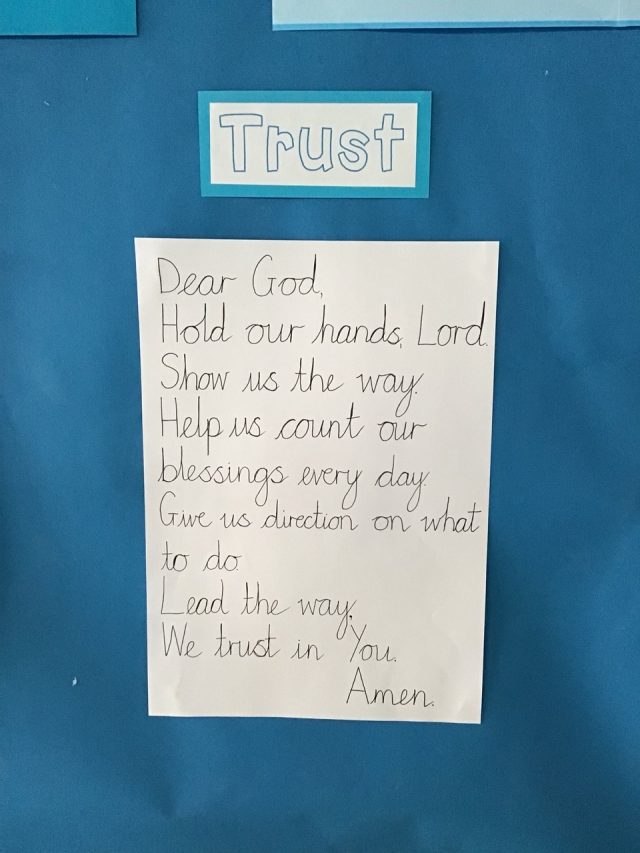 Trust
Dear God,
Hold our hands, Lord.
Show us the way.
Help us count our
blessings every day.
Give us direction on what
to do
Lead the way,
We trust in You.
Amen.